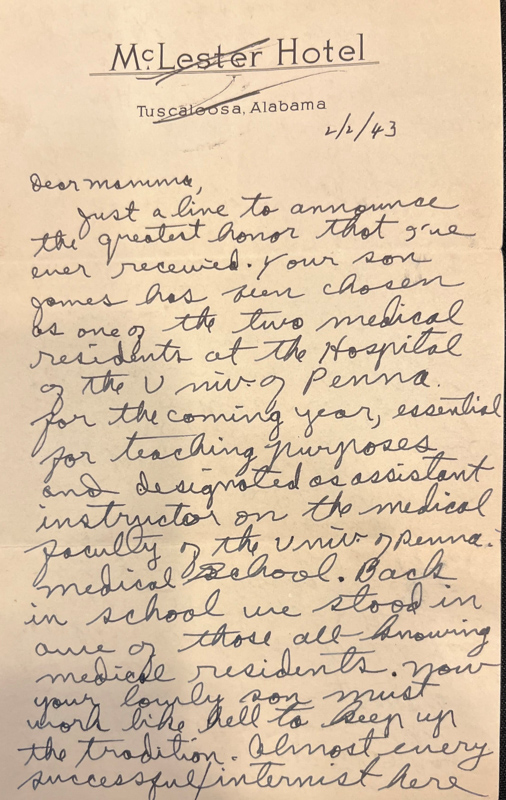 McLester Hotel
Tuscaloosa, Alabama
2/2/43
Dear momma,
Just a line to announce
the greatest honor that I've
ever received. Your son
James has been chosen
as one of the two medical
residents at the Hospital
of the Univ. of Penna.
for the coming year, essential
for teaching purposes
and designated as assistant
instructor on the medical
faculty of the Univ of Penna.
medical School. Back
in school we stood in
awe of those all-knowing
medical residents. Now
your lowly son must
work like hell to keep up
the tradition. Almost every
successful internist here